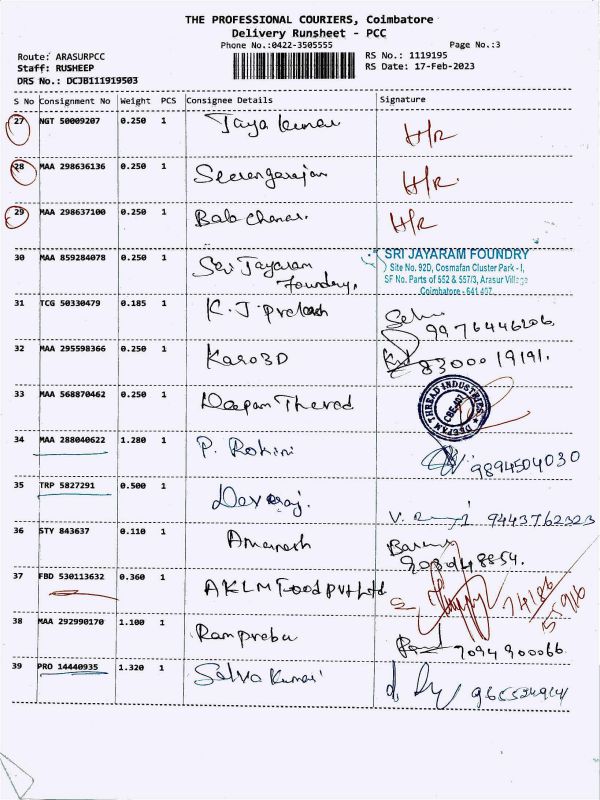 THE PROFESSIONAL COURIERS, Coimbatore
Delivery Runsheet - PCC
Phone No.:0422-3505555 Page No.:3
Route: ARASURPCC RS No.: 1119195
Staff: RUSHEEP RS Date: 17-Feb-2023
DRS No.: DCJB111919503
S No Consignment No Weight PCS Consignee Details Signature
27 NGT 50009207 0.250 1 Jaya kumar H/R
28 MAA 298636136 0.250 1 Seerengarajan H/R
29 MAA 298637100 0.250 1 H/R
30 MAA 859284078 0.250 1 Sri Jayaram SRI JAYARAM FOUNDRY
Foundry, Site No. 92D, Cosmafan Cluster Park - I,
SF No. Parts of 552 & 557/3, Arasur Village
Coimbatore - 641 407.
31 TCG 50330479 0.185 1 K. J. Prakash
9976446206
32 MAA 295598366 0.250 1 Karo3D 8300019191.
33 MAA 568870462 0.250 1 Deepam Thread DEEPAN THREAD INDUSTRIES
CBE-407
34 MAA 288040622 1.280 1 P. Rohini 9894504030
35 TRP 5827291 0.500 1 Devaraj. V. 9443762323
36 STY 843637 0.110 1 Amaresh
37 FBD 530113632 0.360 1 AKLM Food Pvt Ltd 74186
55916
38 MAA 292990170 1.100 1 Ramprebu 7094900066
39 PRO 14440935 1.320 1 Selva Kumar